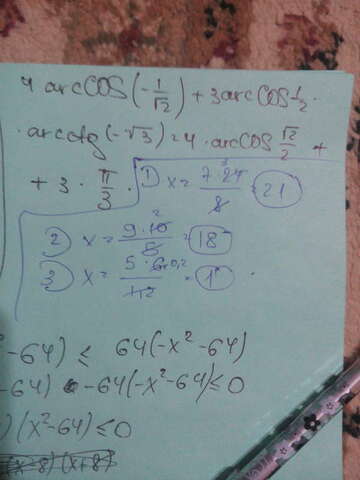 4 arccos(-1/√2) + 3 arccos 1/2 ·
· arcctg(-√3) = 4 · arccos √2/2 +
+ 3 · π/3 ·
1) x = 7·24/8 = 21
2) x = 9·10/8 = 18
3) x = 5·0,2 = 1
-64) ≤ 64(-x²-64)
-64) -64(-x²-64) ≤ 0
) (x²-64) ≤ 0
(x-8)(x+8)